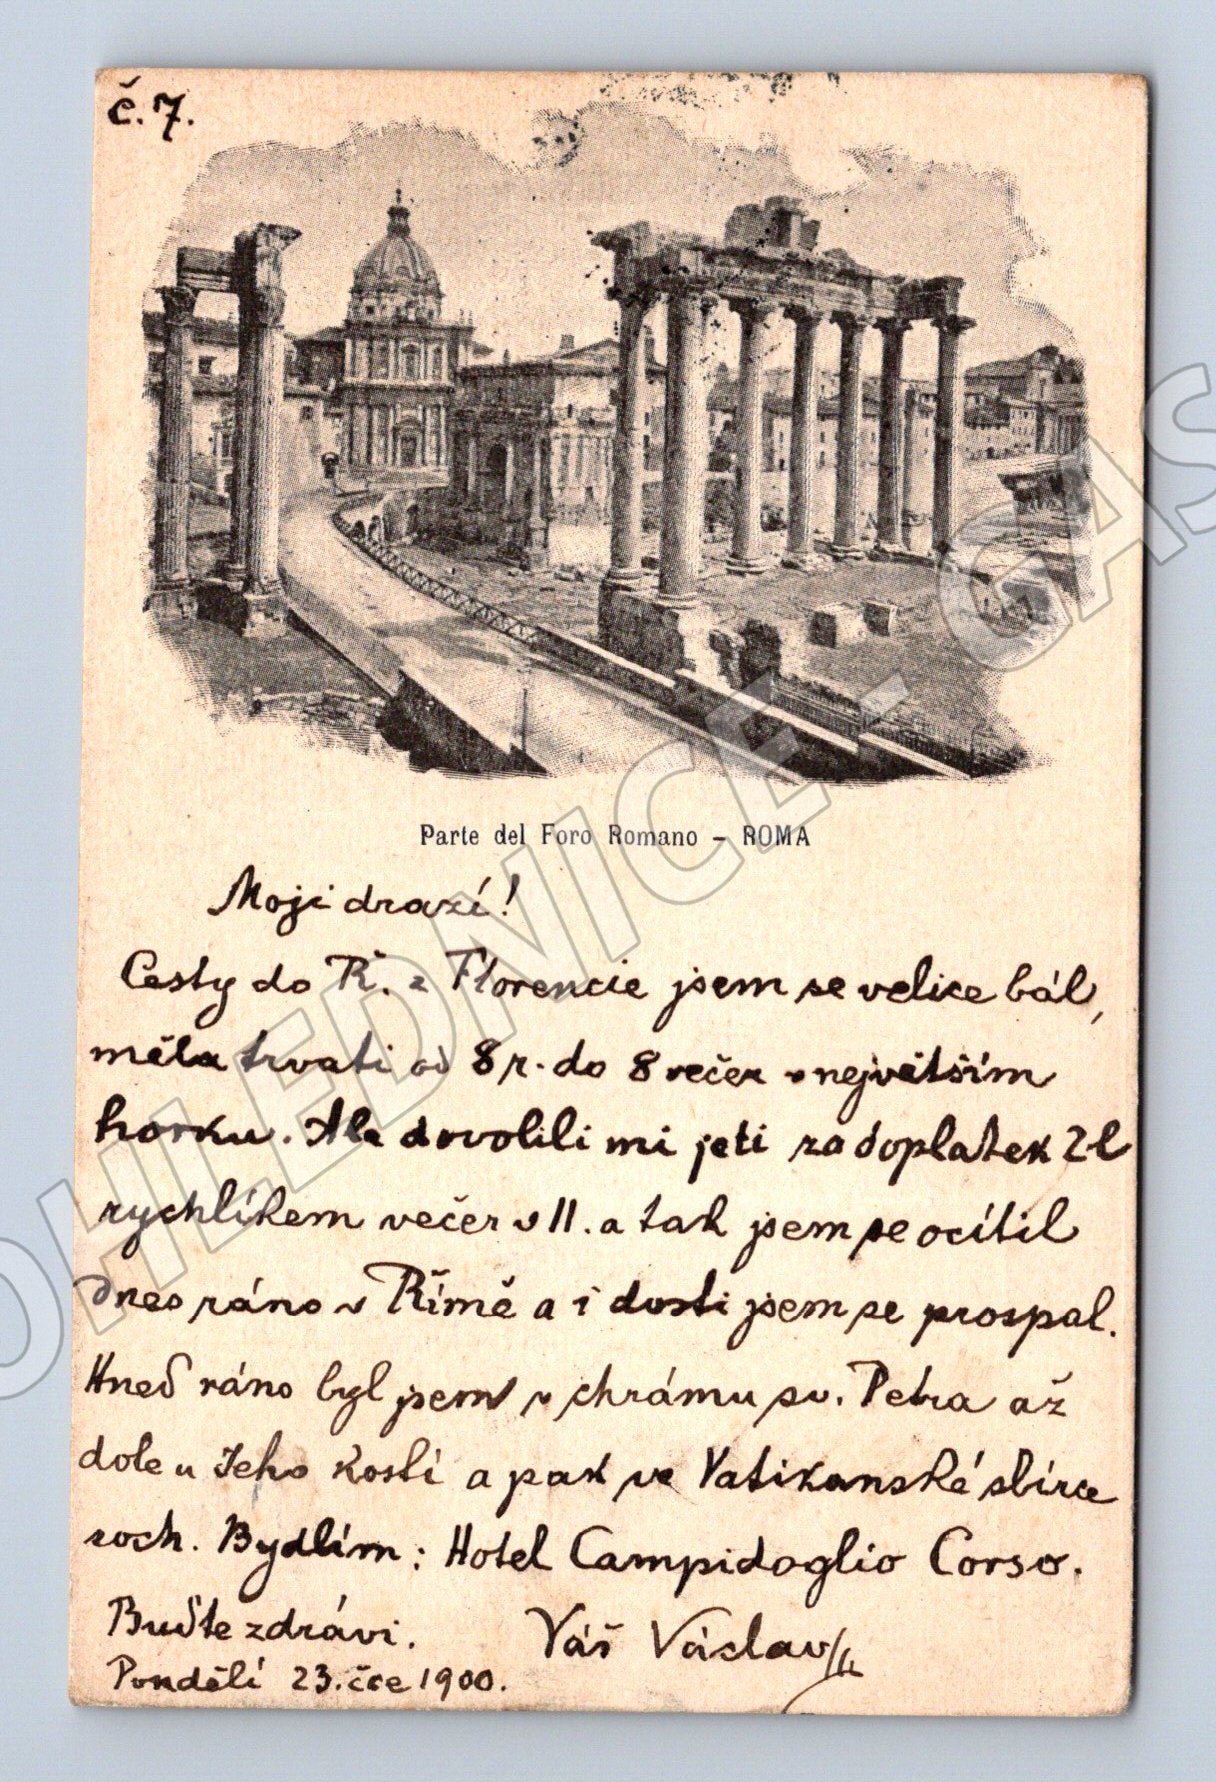 č. 7.
Parte del Foro Romano – ROMA
Moji drazí!
Cesty do Ř. z Florencie jsem se velice bál,
měla trvati od 8 r. do 8 večer v největším
horku. Ale dovolili mi jeti za doplatek 2 l
rychlíkem večer v 11. a tak jsem se ocítil
dnes ráno v Římě a i dosti jsem se prospal.
Hneď ráno byl jsem v chrámu sv. Petra až
dole u Jeho kostí a pak ve Vatikanské sbírce
soch. Bydlím: Hotel Campidoglio Corso.
Buďte zdrávi. Váš Václav
Pondělí 23. čce 1900.
POHLEDNICE - GAS